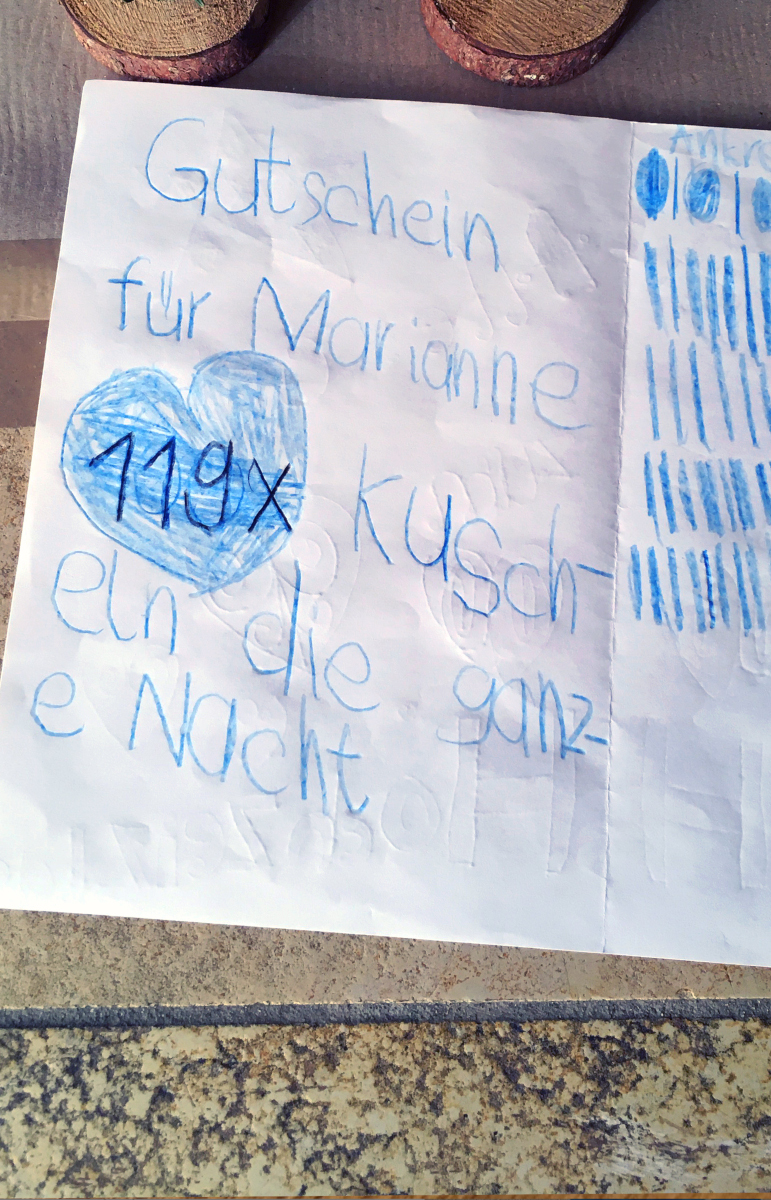 Gutschein
für Marianne
119x kusch-
eln die ganz-
e Nacht